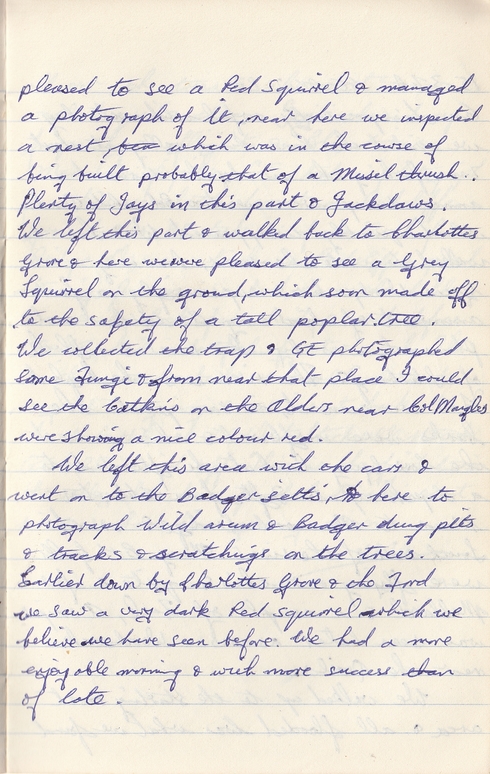 pleased to see a Red Squirrel & managed
a photograph of it, near here we inspected
a nest, which was in the course of
being built probably that of a Misel thrush..
Plenty of Jays in this part & Jackdaws.
We left this part & walked back to Charlottes
Grove & here we were pleased to see a Grey
Squirrel on the ground, which soon made off
to the safety of a tall poplar tree.
We collected the trap & GE photographed
some Fungi & from near that place I could
see the Catkins on the Alders near Col
were showing a nice colour red.
We left this area with the cars &
went on to the Badger setts, here to
photograph Wild arum & Badger dung pits
& tracks & scratchings on the trees.
Earlier down by Charlottes Grove & the Ford
we saw a very dark Red Squirrel which we
believe we have seen before. We had a more
enjoyable morning & with more success than
of late.